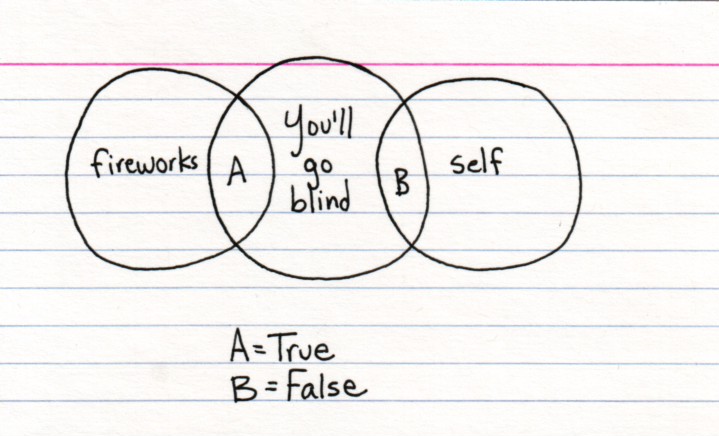 fireworks
A
You'll
go
blind
B
self
A=True
B=False